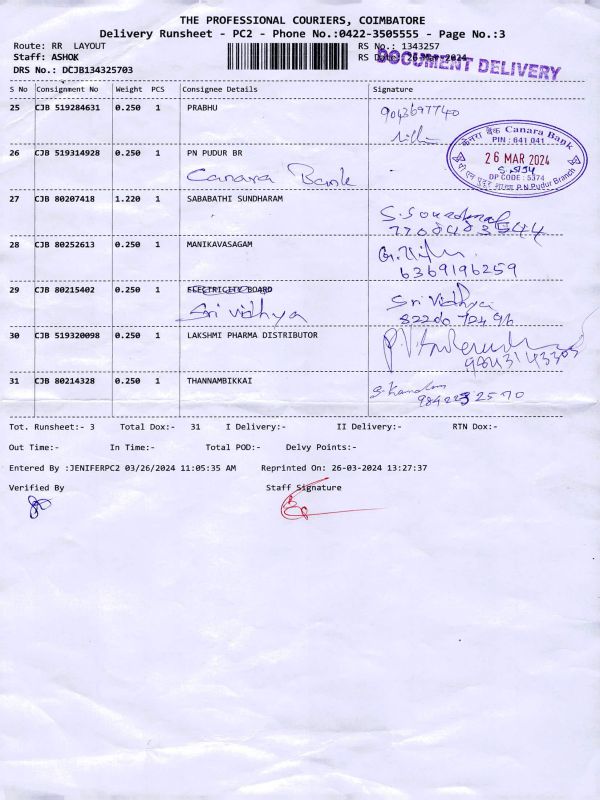 THE PROFESSIONAL COURIERS, COIMBATORE
Delivery Runsheet - PC2 - Phone No.:0422-3505555 - Page No.:3
Route: RR LAYOUT
RS No.: 1343257
Staff: ASHOK
RS Date: 26-Mar-2024
DOCUMENT DELIVERY
DRS No.: DCJB134325703
S No Consignment No Weight PCS Consignee Details Signature
25 CJB 519284631 0.250 1 PRABHU
9043697740
केनरा बैंक Canara Bank
PIN : 641 041
26 MAR 2024
DP CODE : 5374
P.N Pudur Branch
26 CJB 519314928 0.250 1 PN PUDUR BR
Canara Bank
27 CJB 80207418 1.220 1 SABABATHI SUNDHARAM
28 CJB 80252613 0.250 1 MANIKAVASAGAM
6369196259
29 CJB 80215402 0.250 1 ELECTRICITY BOARD
Sri vidhya Sri Vidhya
30 CJB 519320098 0.250 1 LAKSHMI PHARMA DISTRIBUTOR
31 CJB 80214328 0.250 1 THANNAMBIKKAI
Tot. Runsheet:- 3 Total Dox:- 31 I Delivery:- II Delivery:- RTN Dox:-
Out Time:- In Time:- Total POD:- Delvy Points:-
Entered By :JENIFERPC2 03/26/2024 11:05:35 AM Reprinted On: 26-03-2024 13:27:37
Verified By Staff Signature